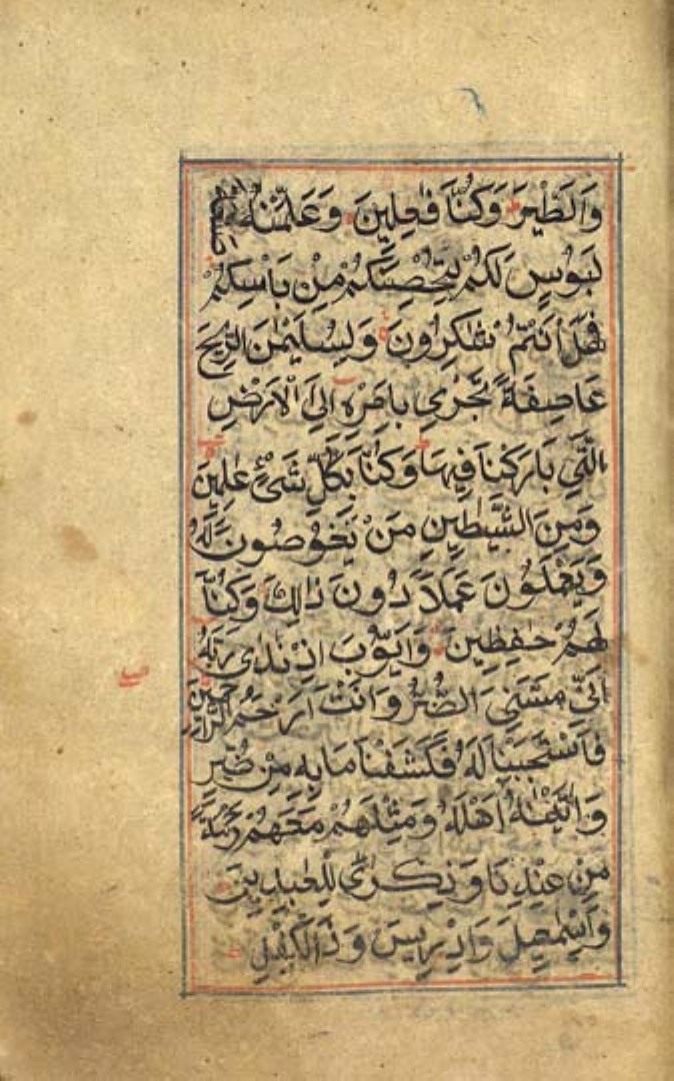 وَالطَّيْرَ وَكُنَّا فٰعِلِينَ وَعَلَّمْنٰهُ
لَبُوْسٍ لَكُمْ لِتُحْصِنَكُمْ مِنْ بَأْسِكُمْ
فَهَلْ أَنْتُمْ شٰكِرُونَ وَلِسُلَيْمٰنَ الرِّيحَ
عَاصِفَةً تَجْرِي بِاَمْرِهِ اِلَى الْاَرْضِ
الَّتِي بَارَكْنَا فِيهَا وَكُنَّا بِكُلِّ شَيْءٍ عٰلِمِينَ
وَمِنَ الشَّيٰطِينِ مَنْ يَغُوصُونَ لَهُ
وَيَعْمَلُونَ عَمَلًا دُونَ ذٰلِكَ وَكُنَّا
لَهُمْ حٰفِظِينَ وَاَيُّوبَ اِذْ نَادٰى رَبَّهُ
اَنِّي مَسَّنِيَ الضُّرُّ وَاَنْتَ اَرْحَمُ الرّٰحِمِينَ
فَاسْتَجَبْنَا لَهُ فَكَشَفْنَا مَا بِهِ مِنْ ضُرٍّ
وَاٰتَيْنٰهُ اَهْلَهُ وَمِثْلَهُمْ مَعَهُمْ رَحْمَةً
مِنْ عِنْدِنَا وَذِكْرٰى لِلْعٰبِدِينَ
وَاِسْمٰعِيلَ وَاِدْرِيسَ وَذَا الْكِفْلِ